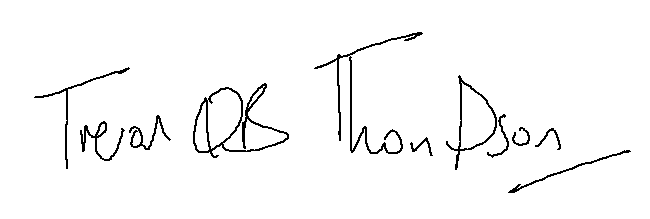 Trevor QB Thompson